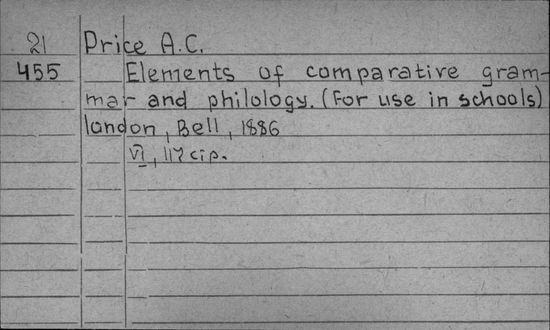 21 Price A.C.
455 Elements of comparative gram-
mar and philology. (For use in schools)
london, Bell, 1886
VI, 117 cip.